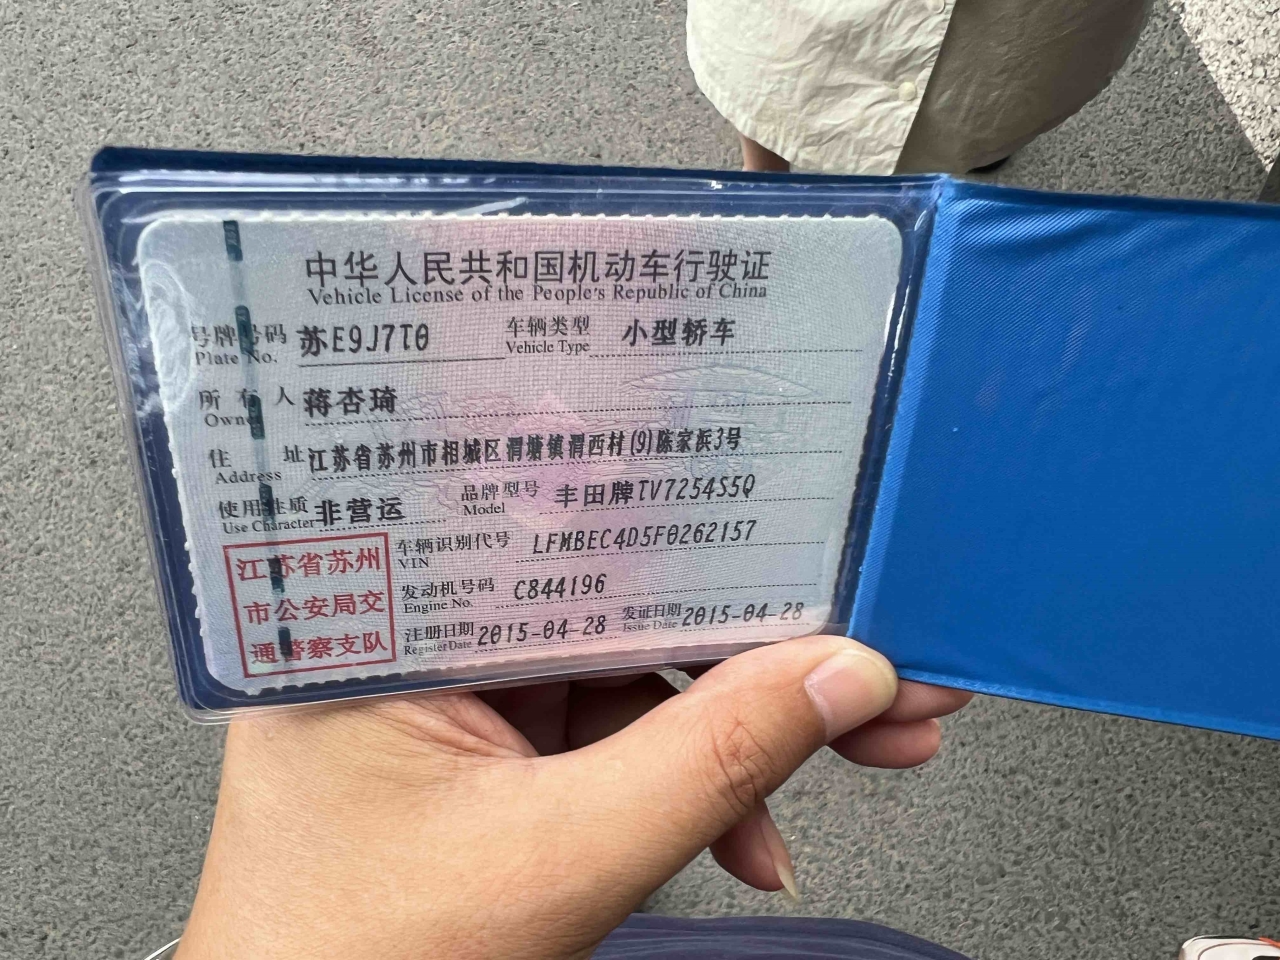 中华人民共和国机动车行驶证
Vehicle License of the People's Republic of China
号牌号码 苏E9J7T0 车辆类型 小型轿车
Plate No. Vehicle Type
所有人 蒋杏琦
Owner
住址 江苏省苏州市相城区渭塘镇渭西村(9)陈家浜3号
Address
使用性质 非营运 品牌型号 丰田牌TV7254S5Q
Use Character Model
车辆识别代号 LFMBEC4D5F0262157
VIN
发动机号码 C844196
Engine No.
注册日期 2015-04-28 发证日期 2015-04-28
Register Date Issue Date
江苏省苏州
市公安局交
通警察支队